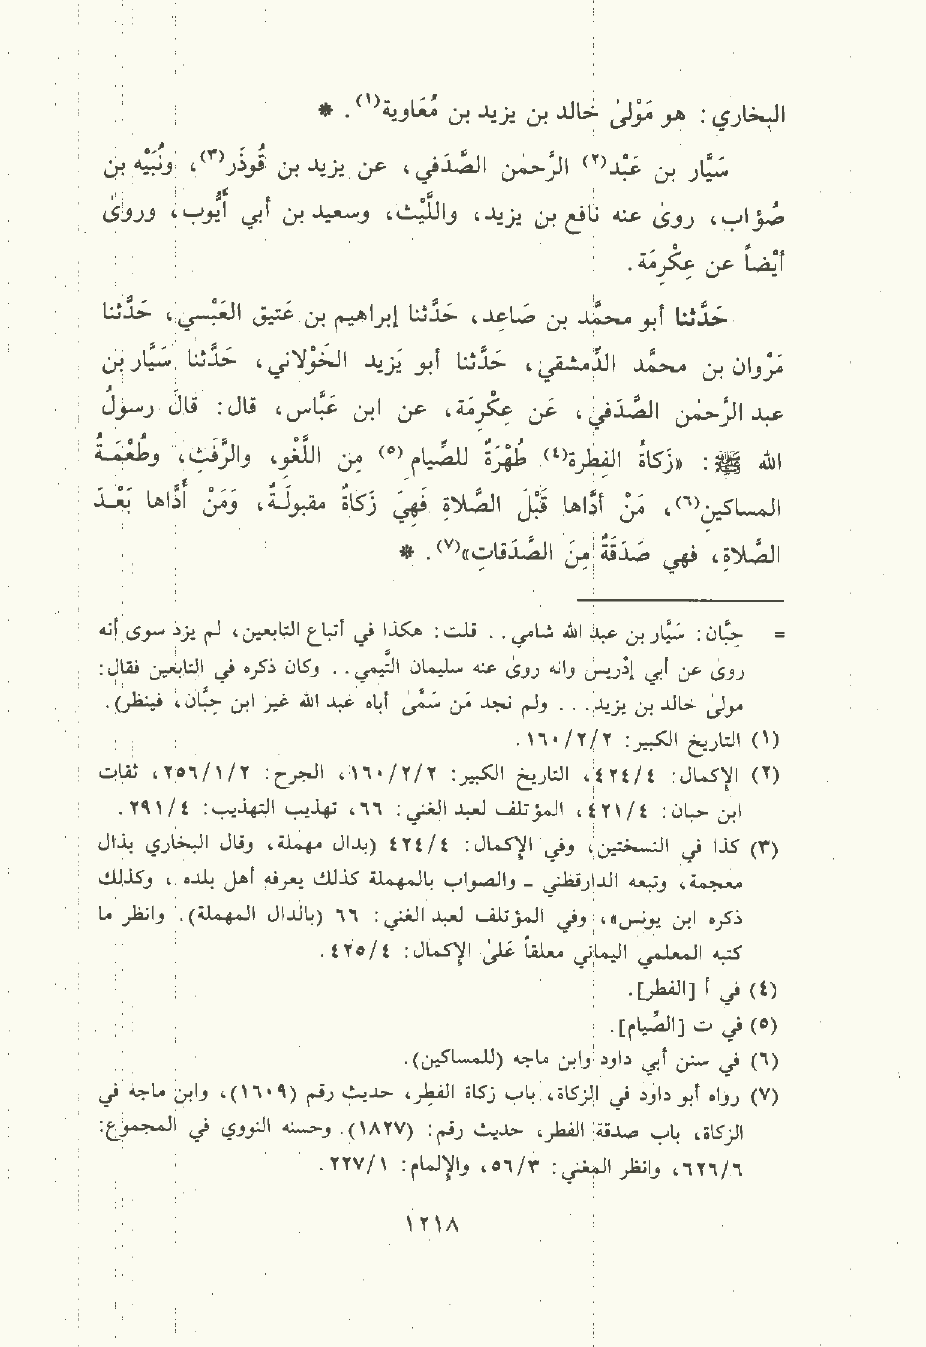 البخاري: هو مَوْلىٰ خالد بن يزيد بن مُعَاوية(١). *
سَيَّار بن عَبْد(٢) الرَّحمٰن الصَّدَفي، عن يزيد بن قُوذَر(٣)، ونُبَيْه بن
صُؤاب، روىٰ عنه نافع بن يزيد، واللَّيْث، وسعيد بن أبي أَيُّوب، وروىٰ
أيْضاً عن عِكْرِمَة.
حَدَّثنا أبو محمَّد بن صَاعِد، حَدَّثنا إبراهيم بن عَتيق العَبْسي، حَدَّثنا
مَرْوان بن محمَّد الدِّمشقي، حَدَّثنا أبو يَزيد الخَوْلاني، حَدَّثنا سَيَّار بن
عبد الرَّحمٰن الصَّدَفي، عَن عِكْرِمَة، عن ابن عَبَّاس، قال: قَالَ رسولُ
الله ﷺ: «زَكاةُ الفِطرة(٤) طُهْرَةٌ للصِّيام(٥) مِن اللَّغْوِ، والرَّفَثِ، وطُعْمَـةُ
المساكينِ(٦)، مَنْ أدَّاها قَبْلَ الصَّلاةِ فَهِيَ زَكاةٌ مقبولَـةٌ، وَمَنْ أَدَّاها بَعْـدَ
الصَّلاةِ، فهي صَدَقَةٌ مِنَ الصَّدَقاتِ»(٧). *
= حِبَّان: سَيَّار بن عبد الله شامي.. قلت: هكذا في أتباع التابعين، لم يزد سوى أنه
روىٰ عن أبي إدْريس وانه روىٰ عنه سليمان التَّيمي.. وكان ذكره في التابعين فقال:
مولىٰ خالد بن يزيد... ولم نجد مَن سَمَّىٰ أباه عبد الله غير ابن حِبَّان، فينظر).
(١) التاريخ الكبير: ١٦٠/٢/٢.
(٢) الإكمال: ٤٢٤/٤، التاريخ الكبير: ١٦٠/٢/٢، الجرح: ٢٥٦/١/٢، ثقات
ابن حبان: ٤٢١/٤، المؤتلف لعبد الغني: ٦٦، تهذيب التهذيب: ٢٩١/٤.
(٣) كذا في النسختين، وفي الإكمال: ٤٢٤/٤ (بدال مهملة، وقال البخاري بذال
معجمة، وتبعه الدارقطني ـ والصواب بالمهملة كذلك يعرفه أهل بلده، وكذلك
ذكره ابن يونس»، وفي المؤتلف لعبد الغني: ٦٦ (بالدال المهملة). وانظر ما
كتبه المعلمي اليماني معلقاً عَلىٰ الإكمال: ٤٢٥/٤.
(٤) في أ [الفطر].
(٥) في ت [الصِّيام].
(٦) في سنن أبي داود وابن ماجه (للمساكين).
(٧) رواه أبو داود في الزكاة، باب زكاة الفِطر، حديث رقم (١٦٠٩)، وابن ماجه في
الزكاة، باب صدقة الفطر، حديث رقم: (١٨٢٧). وحسنه النووي في المجموع:
٦٢٦/٦، وانظر المغني: ٥٦/٣، والإلمام: ٢٢٧/١.
١٢١٨